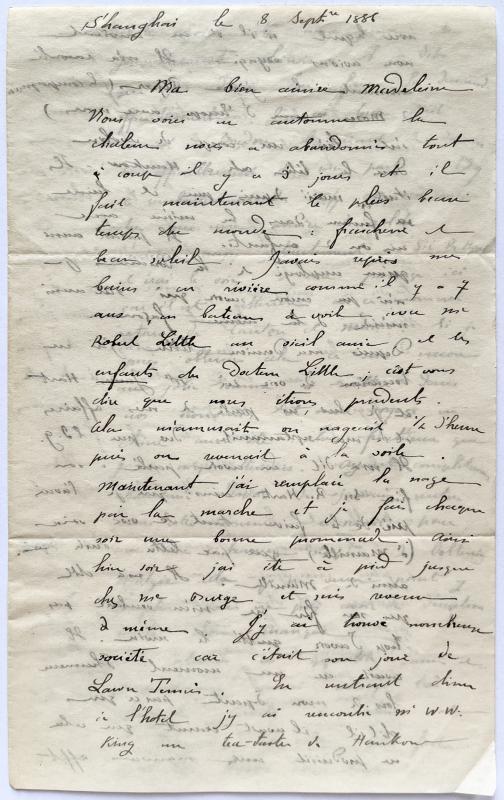 Shanghai le 8 Septre 1886
Ma bien aimée Madeleine
Nous voici en automne la
chaleur nous a abandonnés tout
à coup il y a 3 jours et il
fait maintenant le plus beau
temps du monde : fraicheur et
beau soleil. J'avais repris mes
bains en rivière comme il y a 7
ans, en bateau à voile avec Mr
Robert Little un vieil ami et les
enfants du Docteur Little, c'est vous
dire que nous étions prudents.
Cela m'amusait on nageait 1/2 d'heure
puis on revenait à la voile.
Maintenant j'ai remplacé la nage
par la marche et je fais chaque
soir une bonne promenade. Ainsi
hier soir j'ai été à pied jusque
chez Mr et suis revenu
de même. J'y ai trouvé nombreuse
société car c'était son jour de
Lawn Tennis. En rentrant diner
à l'hotel j'y ai rencontré Mr W.W.
King un tea-taster de Hankow